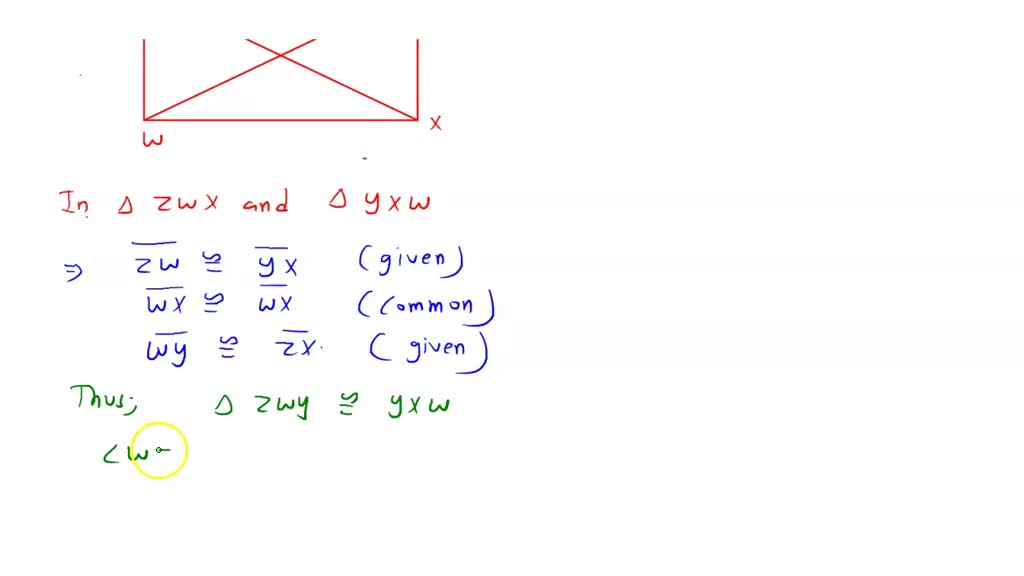 X
W
In Δ ZWX and Δ YXW
⇒ \overline{ZW} ≅ \overline{YX} (given)
\overline{WX} ≅ \overline{WX} (Common)
\overline{WY} ≅ \overline{ZX}. (given)
Thus; Δ ZWY ≅ YXW
∠W